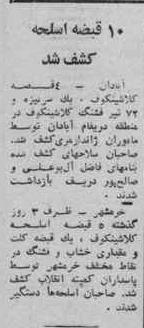 ۱۰ قبضه اسلحه
کشف شد
آبادان - ۴ قبضه
کلاشینکوف، یك سرنیزه و
۷۲ تیر فشنگ کلاشینکوف در
منطقه دریفام آبادان توسط
ماموران ژاندارمری کشف شد.
صاحبان سلاحهای کشف شده
بنامهای فاضل آلبوعلی و
صالح‌پور دریف بازداشت
شدند.
خرمشهر - ظرف ۳ روز
گذشته ۵ قبضه اسلحه
کلاشینکوف، یك قبضه کلت
و مقداری خشاب و فشنگ در
نقاط مختلف خرمشهر توسط
پاسداران کمیته انقلاب کشف
شد. صاحبان اسلحه‌ها دستگیر
شدند.